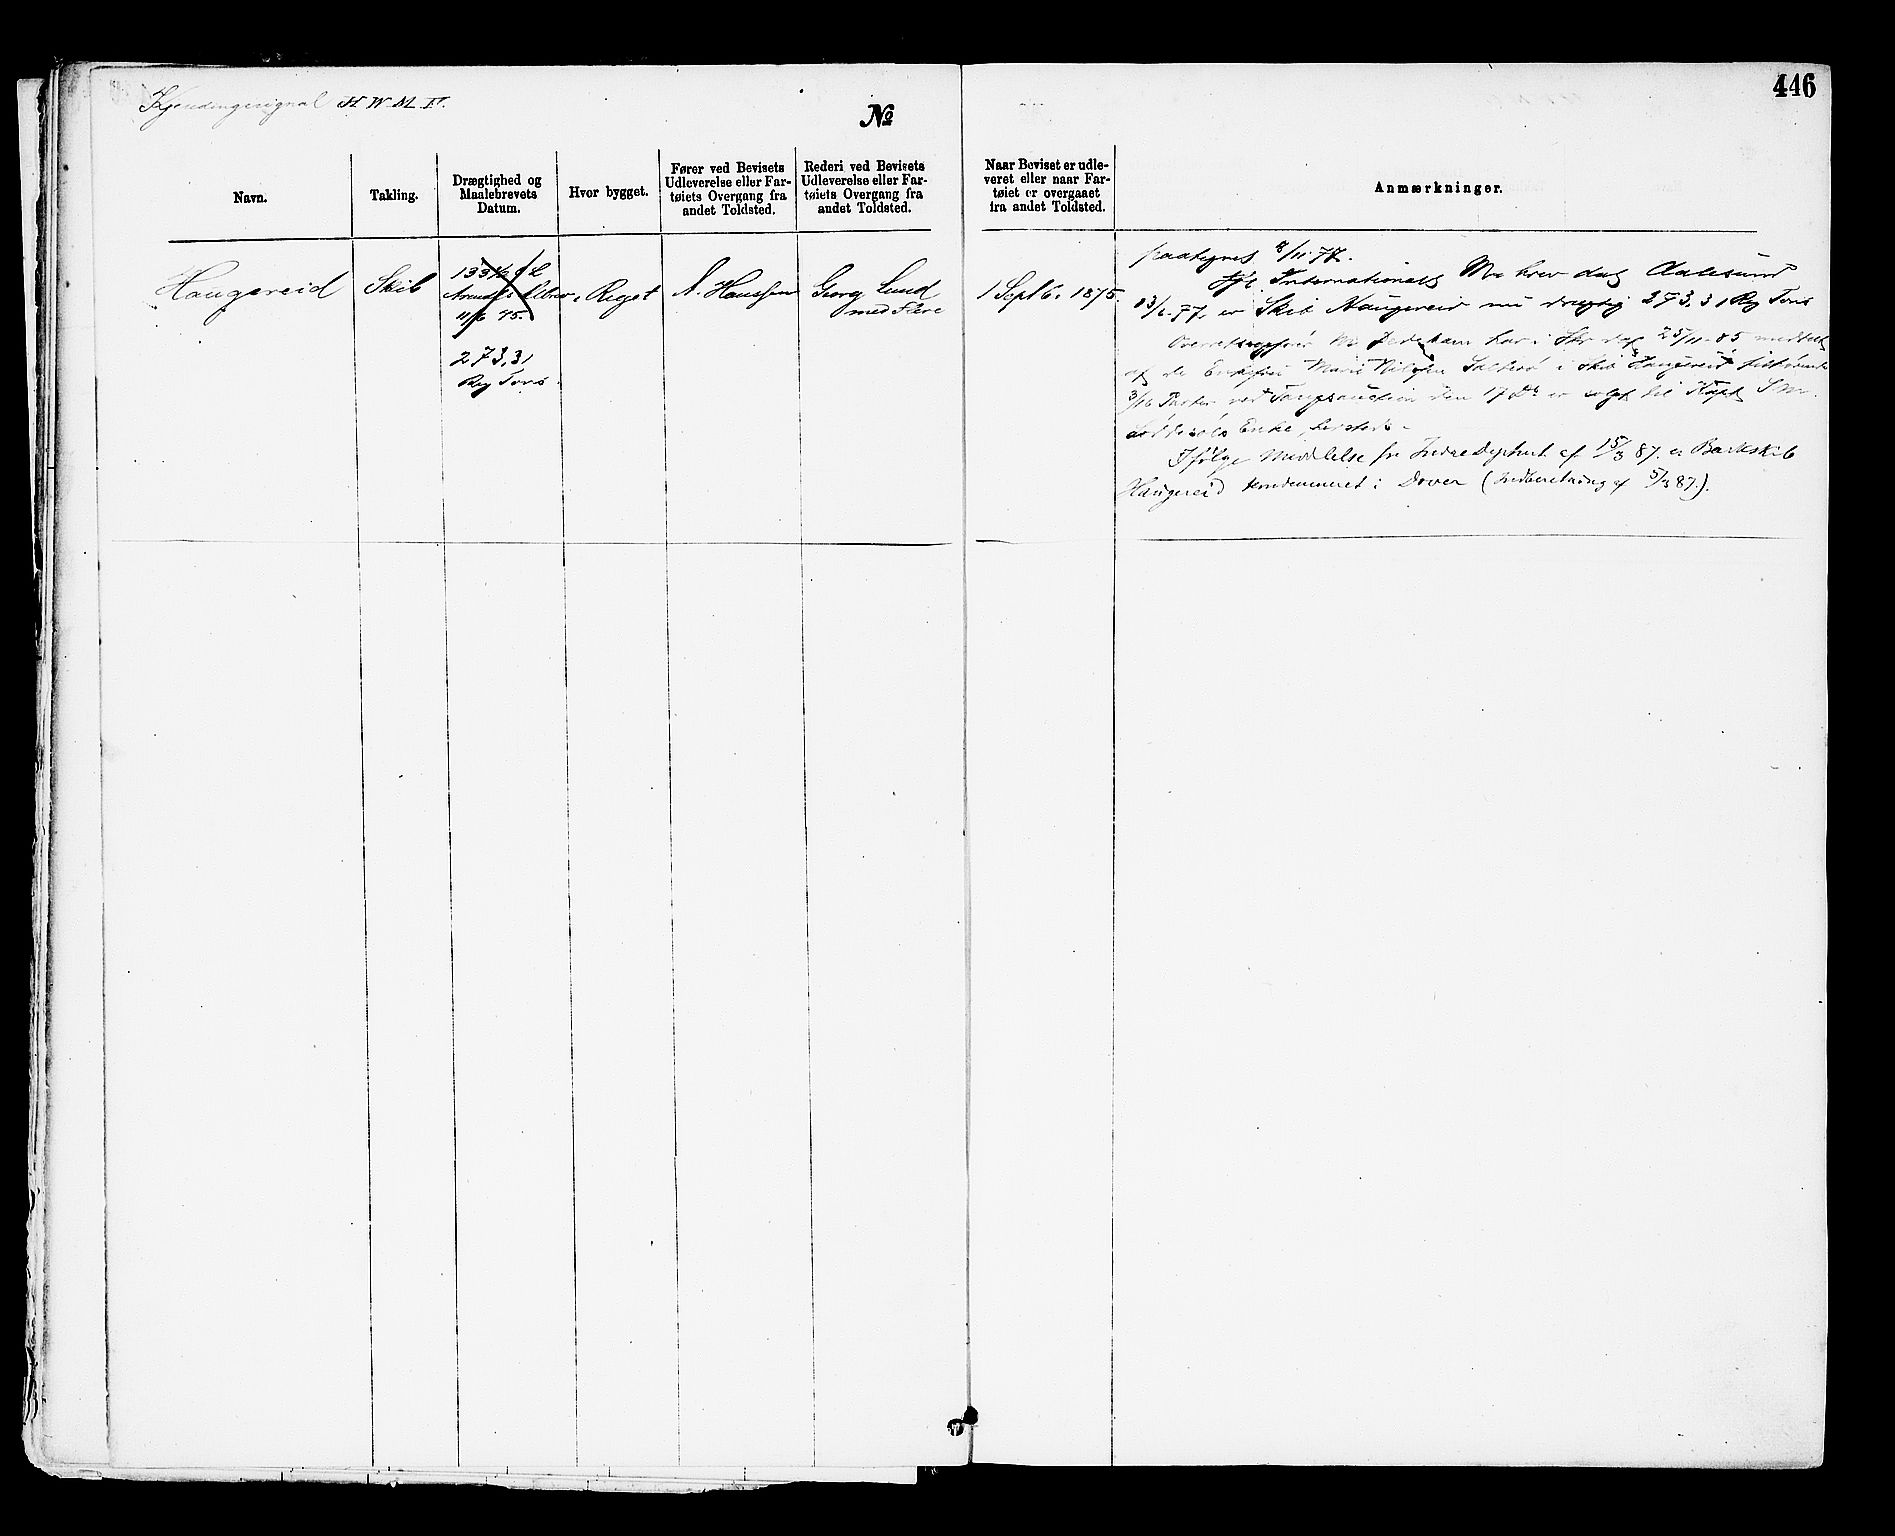 Kjendingssignal H W M F.
446
No
Navn.
Takling.
Drægtighed og
Maalebrevets
Datum.
Hvor bygget.
Fører ved Bevisets
Udleverelse eller Far-
tøiets Overgang fra
andet Toldsted.
Rederi ved Bevisets
Udleverelse eller Far-
tøiets Overgang fra
andet Toldsted.
Naar Beviset er udle-
veret eller naar Far-
tøiet er overgaaet
fra andet Toldsted.
Anmærkninger.
Haugereid
Skib
133½ Cl
11/6 75.
273,31
Reg Tons
Riget
N. Hanssen
Georg Lund
med Flere
1 Septb. 1875.
paategnet 8/11 77.
Internationalt Maalebrev dat Aalesund
13/6 77. er Skib Haugereid nu drægtig 273,31 Reg Tons
har i Skr. af 25/11-85 meddelt
at de Enkefru Marie i Skib Haugereid tilhørende
3/16 Parter ved Tangsauction den 17 Ds er solgt til Kapt
Enke, hersteds.
Ifølge Meddelelse fra Indre Depchent af 15/3 87. er Barkskib
Haugereid kondemneret i Dover (Indberetning af 5/3 87.).